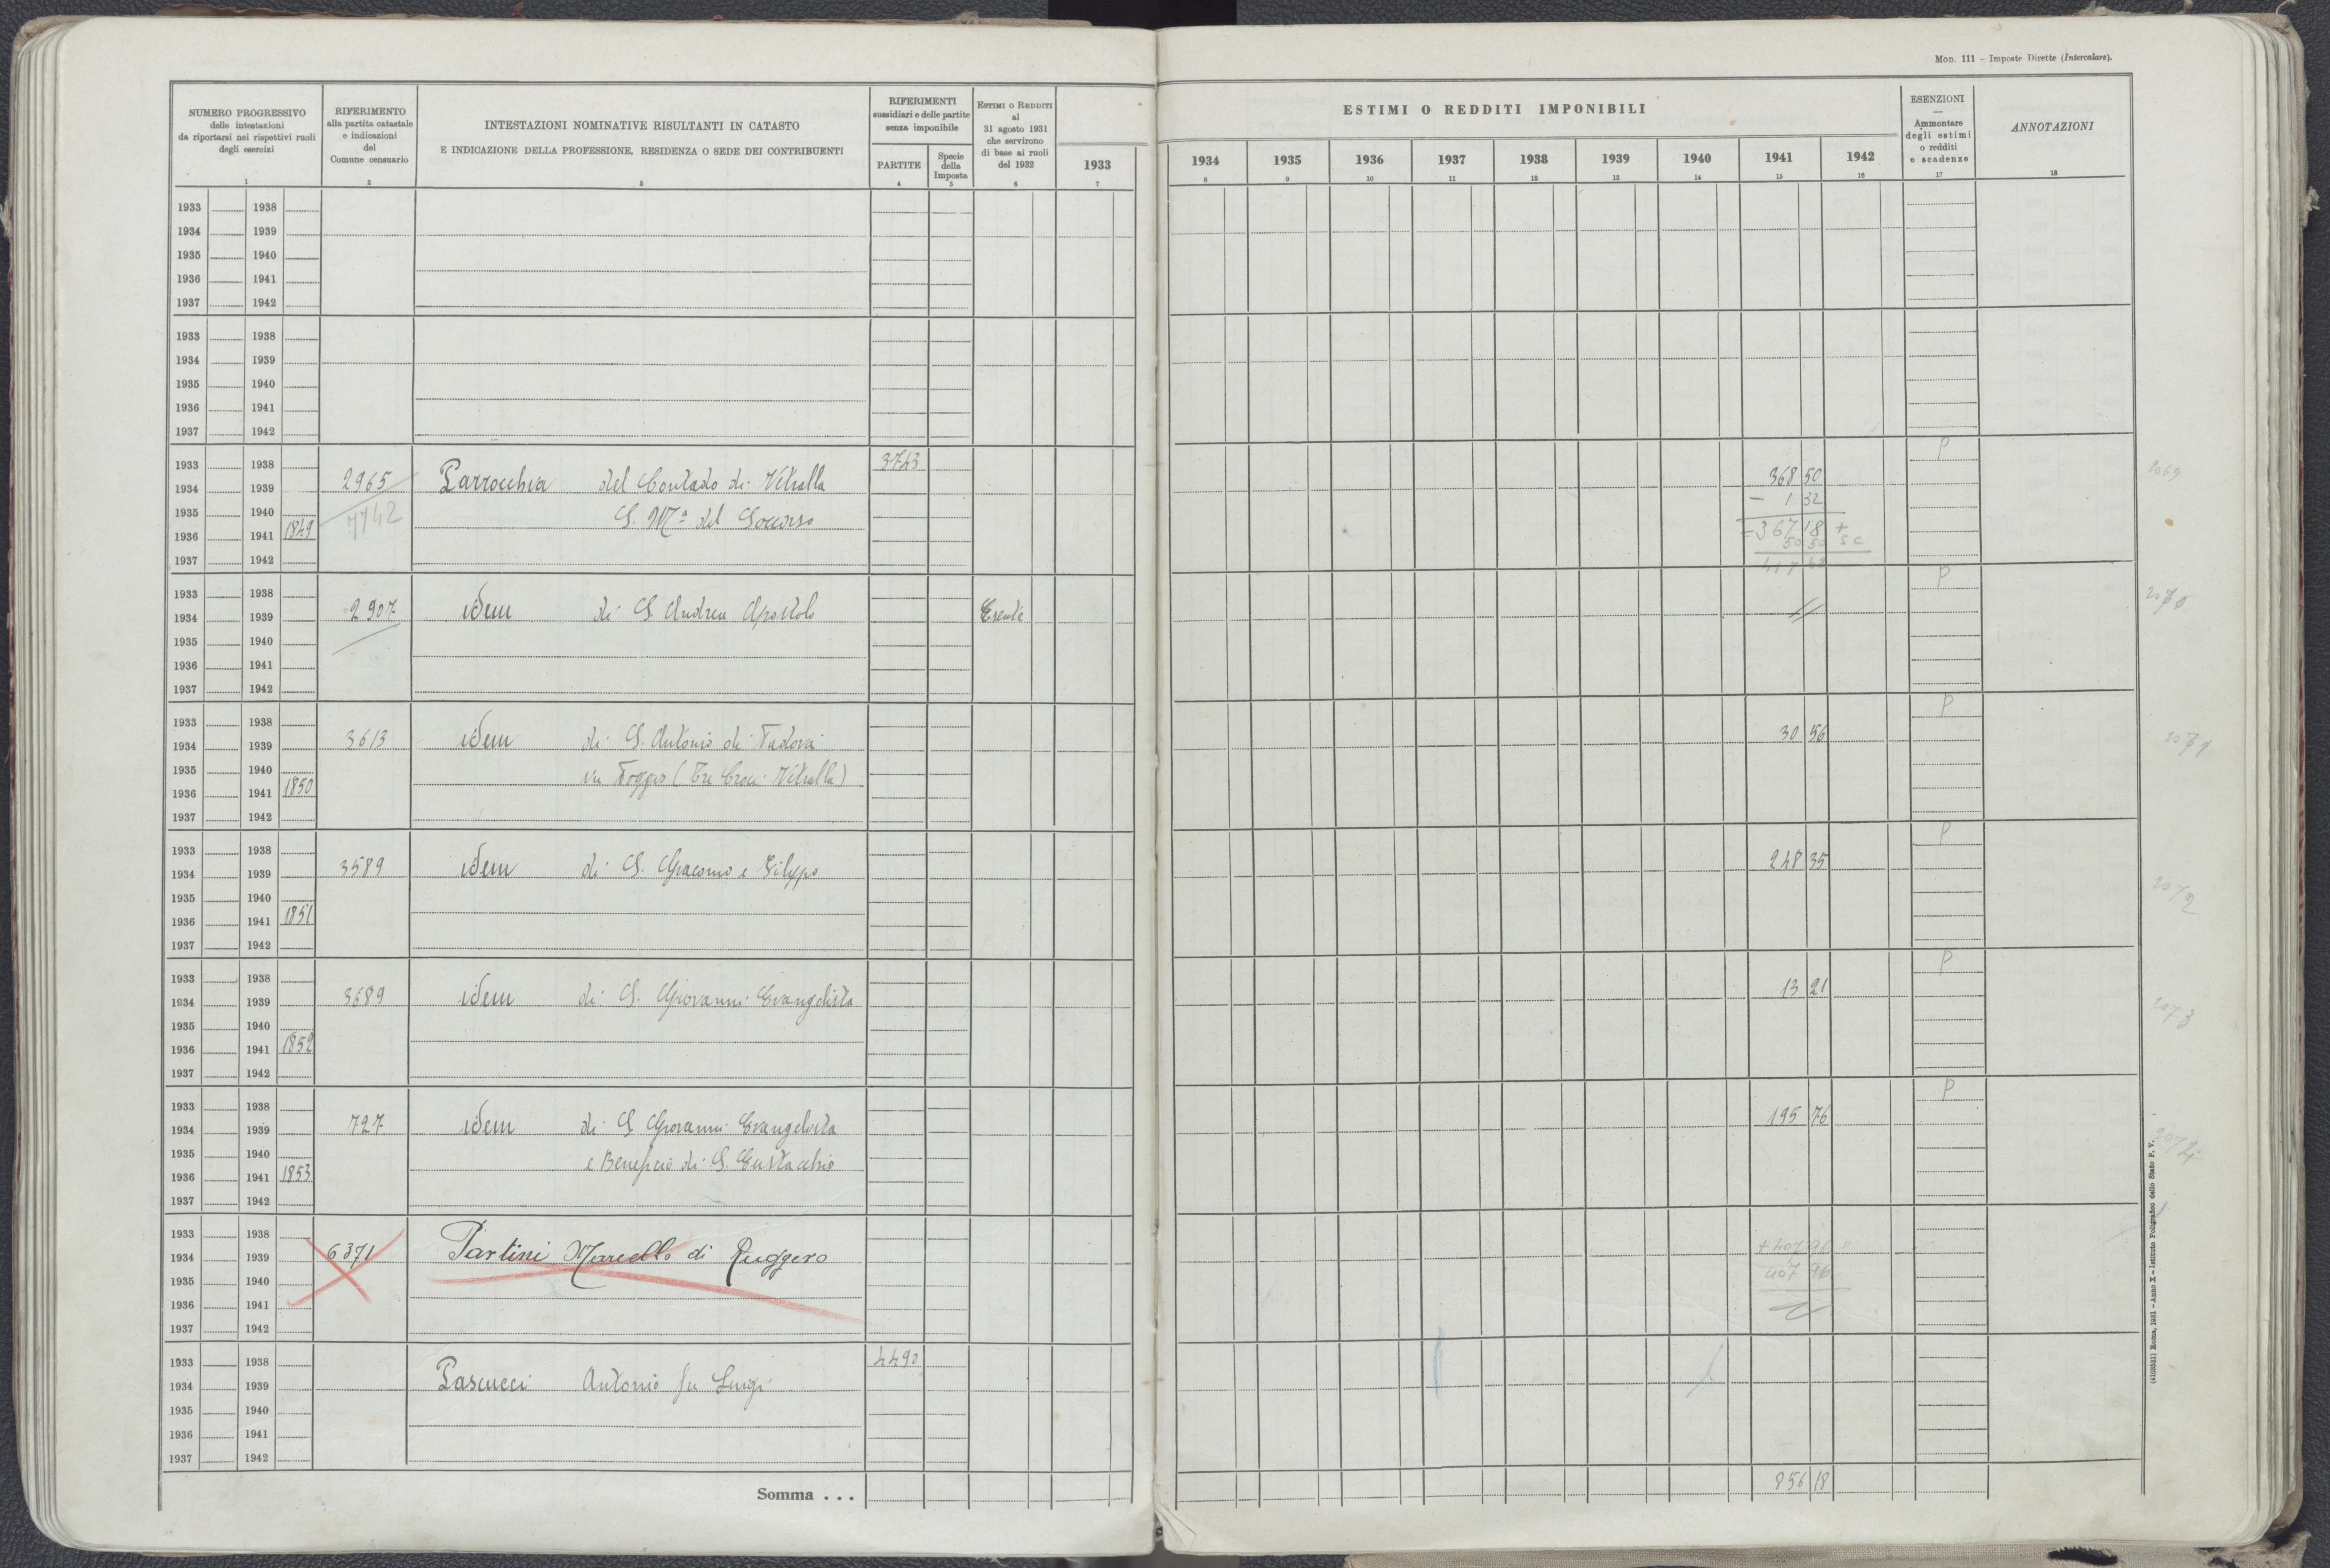 Mod. 111 – Imposte Dirette (Intercalare).
NUMERO PROGRESSIVO
delle intestazioni
da riportarsi nei rispettivi ruoli
degli esercizi
1
RIFERIMENTO
alla partita catastale
e indicazioni
del
Comune censuario
2
INTESTAZIONI NOMINATIVE RISULTANTI IN CATASTO
E INDICAZIONE DELLA PROFESSIONE, RESIDENZA O SEDE DEI CONTRIBUENTI
3
RIFERIMENTI
sussidiari e delle partite
senza imponibile
PARTITE
4
Specie
della
Imposta
5
ESTIMI O REDDITI
al
31 agosto 1931
che servirono
di base ai ruoli
del 1932
6
1933
7
ESTIMI O REDDITI IMPONIBILI
1934 1935 1936 1937 1938 1939 1940 1941 1942
8 9 10 11 12 13 14 15 16
ESENZIONI
—
Ammontare
degli estimi
o redditi
e scadenze
17
ANNOTAZIONI
18
1933 1938
1934 1939
1935 1940
1936 1941
1937 1942
1933 1938
1934 1939
1935 1940
1936 1941
1937 1942
1933 1938 3743 P
1934 1939 2965 Parrocchia del Contado di Vetralla 368 50 2069
1935 1940 7742 S. Mª del Soccorso – 1 32
1936 1941 1849 = 367 18 +
50 50 sc
1937 1942
1933 1938 P
1934 1939 2907 idem di S. Andrea Apostolo Esente // 2070
1935 1940
1936 1941
1937 1942
1933 1938 P
1934 1939 3613 idem di S. Antonio di Padova 30 56 2071
1935 1940 via Poggio (Tre Croci Vetralla)
1936 1941 1850
1937 1942
1933 1938 P
1934 1939 3589 idem di S. Giacomo e Filippo 248 35 2072
1935 1940
1936 1941 1851
1937 1942
1933 1938 P
1934 1939 3689 idem di S. Giovanni Evangelista 13 21 2073
1935 1940
1936 1941 1852
1937 1942
1933 1938 P
1934 1939 727 idem di S Giovanni Evangelista 195 76 2074
1935 1940 e Beneficio di S. Eustacchio
1936 1941 1853
1937 1942
1933 1938
1934 1939 6371 Partini Marcello di Ruggero + 407 96
1935 1940 407 96
1936 1941 //
1937 1942
1933 1938 4490
1934 1939 Pascucci Antonio fu Luigi
1935 1940
1936 1941
1937 1942
Somma . . . 856 18
(4102531) Roma, 1931 – Anno X – Istituto Poligrafico dello Stato P. V.